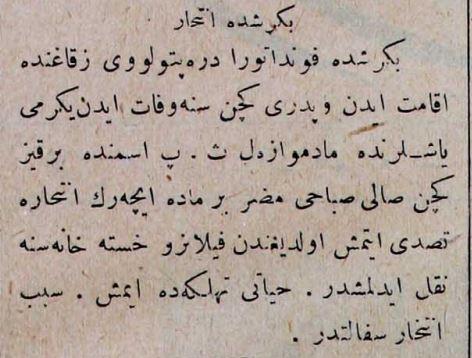 بكرشده انتحار
بكرشده فونداتورا دره پتولووى زقاغنده
اقامت ايدن و پدرى كچن سنه وفات ايدن يكرمى
ياشلرنده مادموازه‌ل ث . پ اسمنده بر قيز
كچن صالى صباحى مضر بر ماده ايچه‌رك انتحاره
تصدى ايتمش اولديغندن فيلانزو خسته خانه‌سنه
نقل ايدلمشدر . حياتى تهلكه‌ده ايمش . سبب
انتخار سفالتدر .